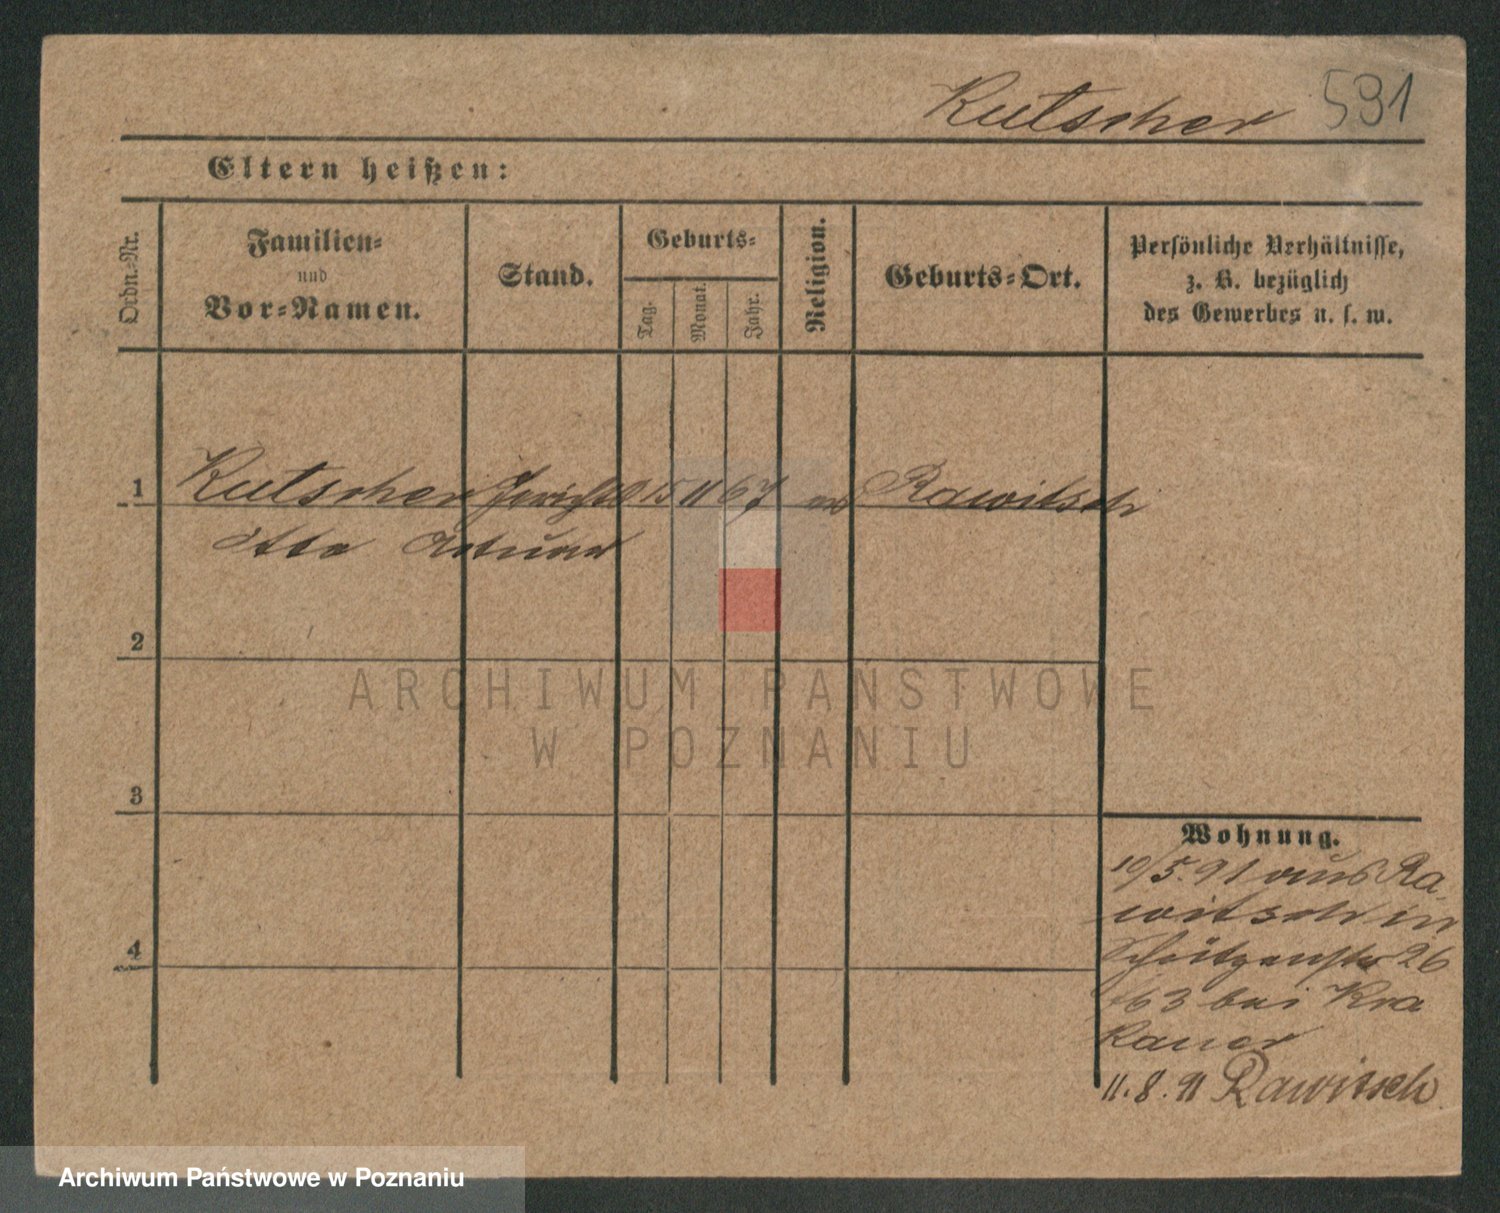 Kutscher 591
Eltern heißen:
Ordn.-Nr.
Familien-
und
Vor-Namen.
Stand.
Geburts-
Tag.
Monat.
Jahr.
Religion.
Geburts-Ort.
Persönliche Verhältnisse,
z. B. bezüglich
des Gewerbes u. s. w.
1 Kutscher Gerichts 15 11 67 Rawitsch
Otto Actuar
2
3
4
ARCHIWUM PAŃSTWOWE
W POZNANIU
Wohnung.
19/5.91 aus Ra-
witsch in
Schützenstr 26
bei Kra
kauer
11.8.91 Rawitsch.
Archiwum Państwowe w Poznaniu